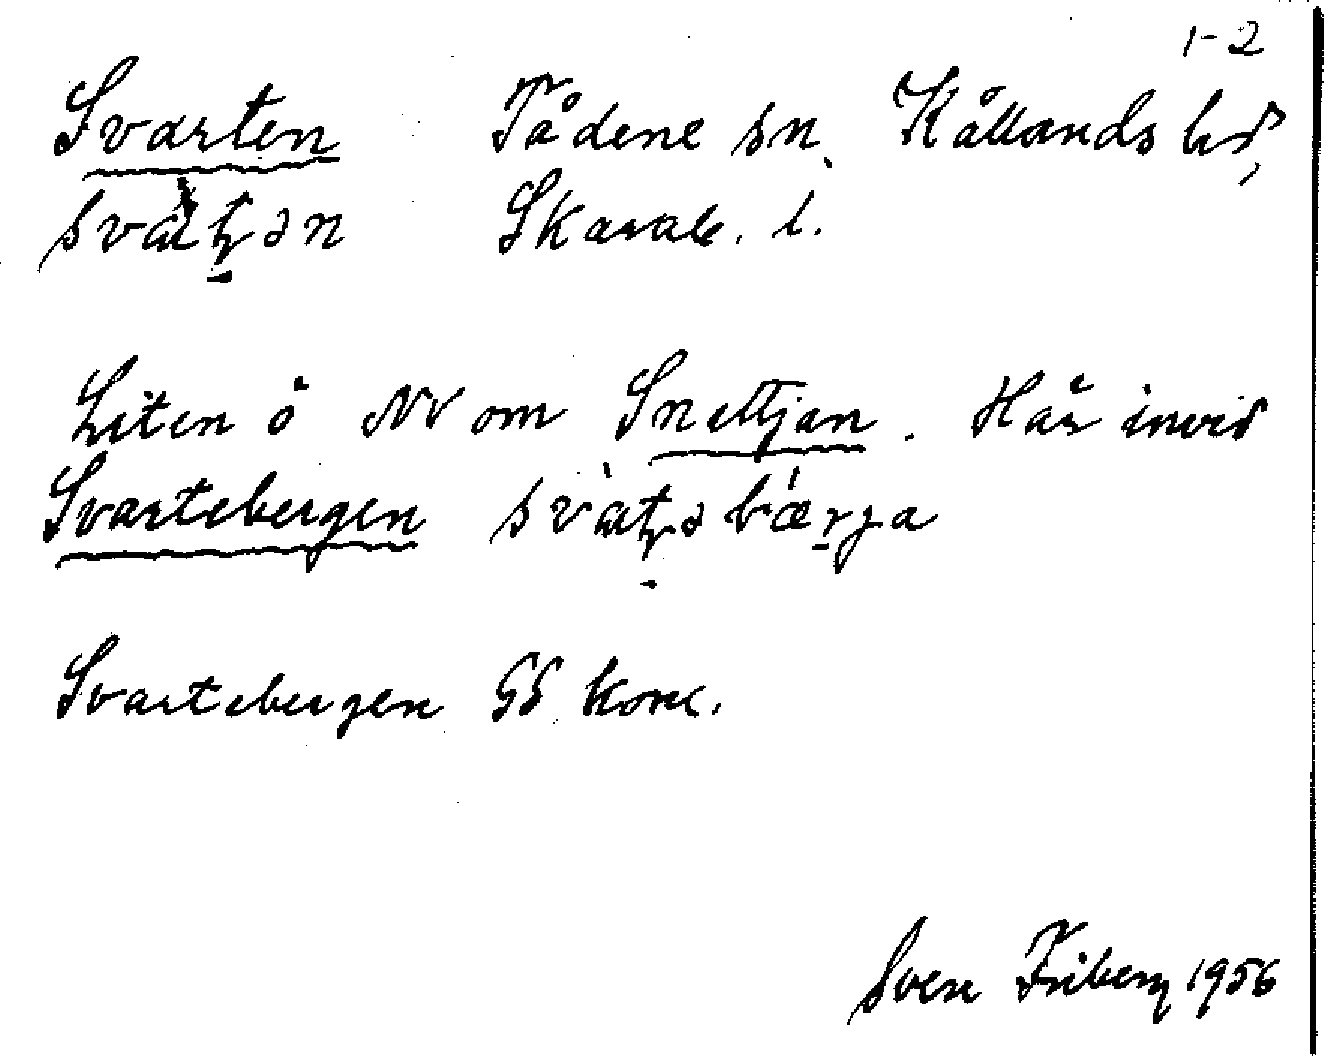 1-2
Svarten Tådene sn. Kållands hd,
Skarab. l.
Liten ö NV om Snettjan. Här invid
Svartebergen
Svartebergen GS kone.
Sven Friberg 1956